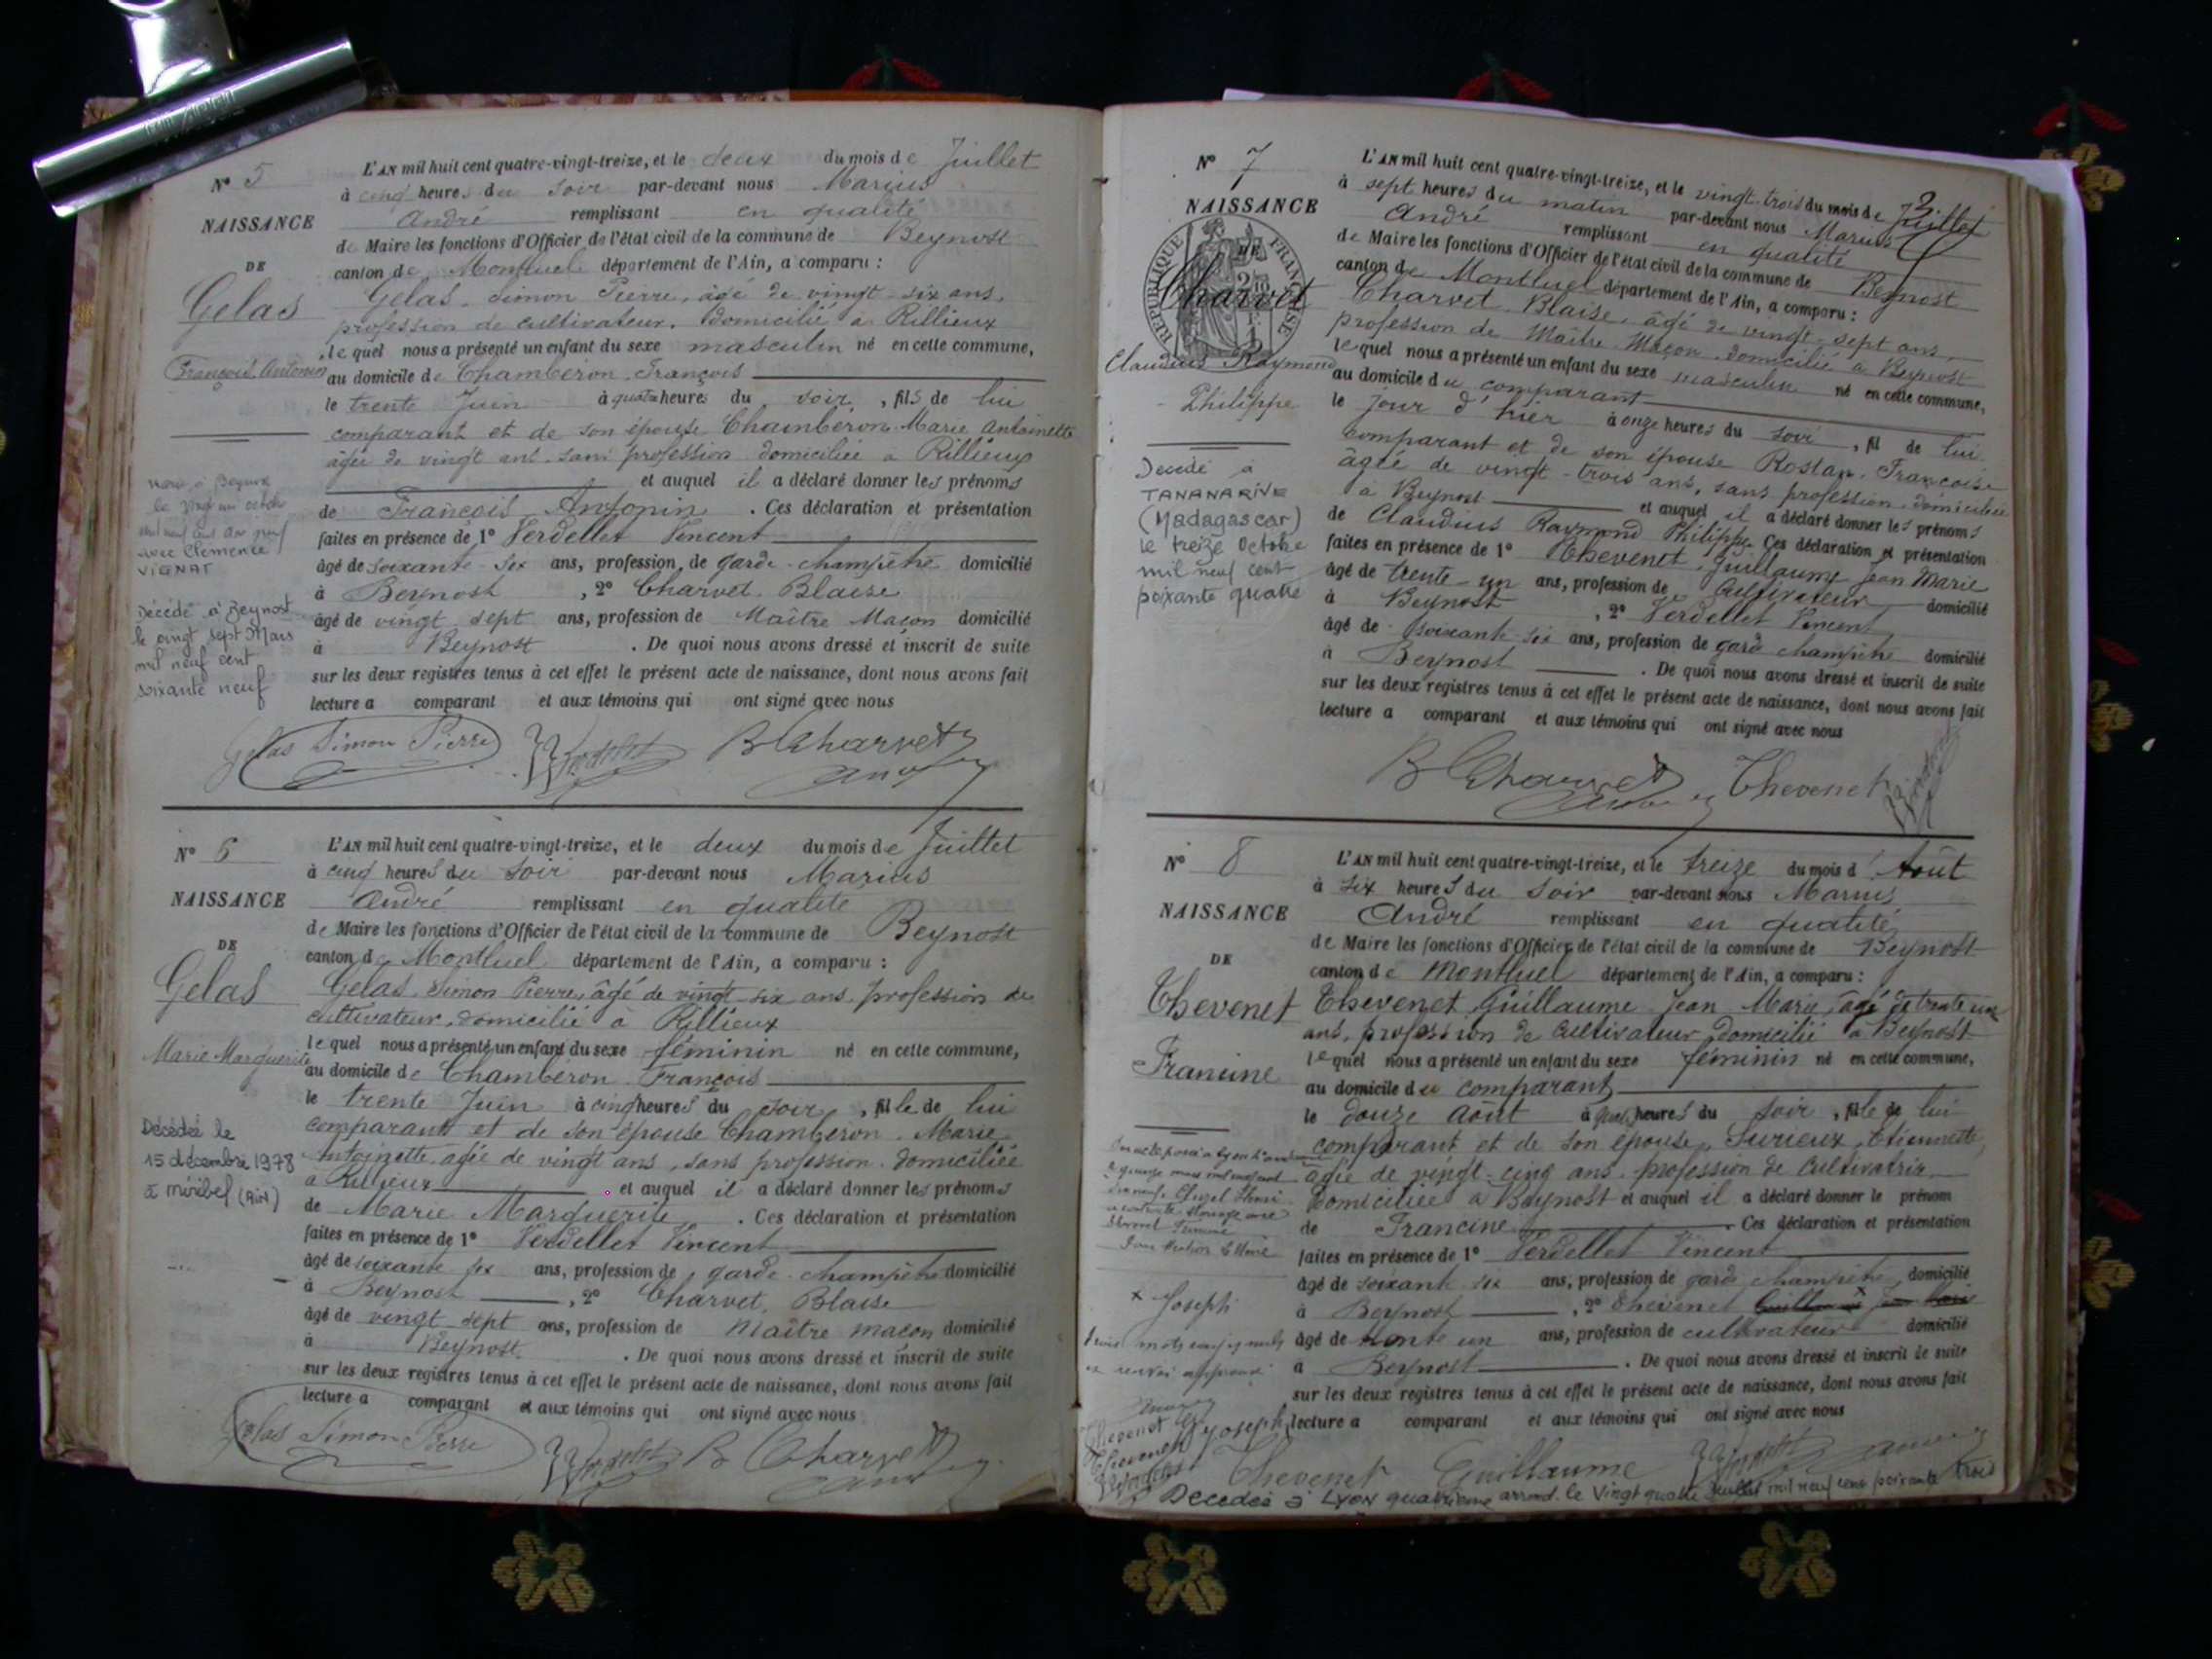 N° 5
NAISSANCE
DE
Gelas
François Antonin
Marié à Beynost
le vingt un octobre
mil neuf cent dix neuf
avec Clémence
VIGNAT
Décédé à Beynost
le vingt sept Mars
mil neuf cent
soixante neuf
L'AN mil huit cent quatre-vingt-treize, et le deux du mois de Juillet
à cinq heures du soir par-devant nous Marius
André remplissant en qualité
de Maire les fonctions d'Officier de l'état civil de la commune de Beynost
canton de Montluel département de l'Ain, a comparu :
Gelas Simon Pierre, âgé de vingt-six ans,
profession de cultivateur, domicilié à Rillieux
lequel nous a présenté un enfant du sexe masculin né en cette commune,
au domicile de Chamberon François
le trente Juin à quatre heures du soir, fils de lui
comparant et de son épouse Chamberon Marie Antoinette
âgée de vingt ans sans profession domiciliée à Rillieux
et auquel il a déclaré donner les prénoms
de François Antonin. Ces déclaration et présentation
faites en présence de 1° Verdellet Vincent
âgé de soixante-six ans, profession de garde-champêtre domicilié
à Beynost, 2° Charvet Blaise
âgé de vingt sept ans, profession de Maître Maçon domicilié
à Beynost. De quoi nous avons dressé et inscrit de suite
sur les deux registres tenus à cet effet le présent acte de naissance, dont nous avons fait
lecture a comparant et aux témoins qui ont signé avec nous
Gelas Simon Pierre B Charvet
N° 6
NAISSANCE
DE
Gelas
Marie Marguerite
Décédée le
15 décembre 1978
à miribel (AIN)
L'AN mil huit cent quatre-vingt-treize, et le deux du mois de Juillet
à cinq heures du soir par-devant nous Marius
André remplissant en qualité
de Maire les fonctions d'Officier de l'état civil de la commune de Beynost
canton de Montluel département de l'Ain, a comparu :
Gelas Simon Pierre, âgé de vingt-six ans, profession de
cultivateur, domicilié à Rillieux
lequel nous a présenté un enfant du sexe féminin né en cette commune,
au domicile de Chamberon François
le trente Juin à cinq heures du soir, fille de lui
comparant et de son épouse Chamberon Marie
Antoinette âgée de vingt ans, sans profession domiciliée
à Rillieux et auquel il a déclaré donner les prénoms
de Marie Marguerite. Ces déclaration et présentation
faites en présence de 1° Verdellet Vincent
âgé de soixante six ans, profession de garde-champêtre domicilié
à Beynost, 2° Charvet, Blaise
âgé de vingt sept ans, profession de Maître maçon domicilié
à Beynost. De quoi nous avons dressé et inscrit de suite
sur les deux registres tenus à cet effet le présent acte de naissance, dont nous avons fait
lecture a comparant et aux témoins qui ont signé avec nous
Gelas Simon Pierre B Charvet
N° 7
NAISSANCE
DE
RÉPUBLIQUE FRANÇAISE
Charvet
Claudius Raymond
Philippe
Décédé à
TANANARIVE
(Madagascar)
le treize Octobre
mil neuf cent
soixante quatre
L'AN mil huit cent quatre-vingt-treize, et le vingt-trois du mois de Juillet
à sept heures du matin par-devant nous Marius
André remplissant en qualité
de Maire les fonctions d'Officier de l'état civil de la commune de Beynost
canton de Montluel département de l'Ain, a comparu :
Charvet Blaise, âgé de vingt-sept ans,
profession de Maître Maçon domicilié à Beynost
lequel nous a présenté un enfant du sexe masculin né en cette commune,
au domicile du comparant
le jour d'hier à onze heures du soir, fil de lui
comparant et de son épouse Rostan Françoise
âgée de vingt-trois ans, sans profession domiciliée
à Beynost et auquel il a déclaré donner les prénoms
de Claudius Raymond Philippe. Ces déclaration et présentation
faites en présence de 1° Thevenet Guillaume Jean Marie
âgé de trente-un ans, profession de Cultivateur domicilié
à Beynost, 2° Verdellet Vincent
âgé de soixante six ans, profession de garde champêtre domicilié
à Beynost. De quoi nous avons dressé et inscrit de suite
sur les deux registres tenus à cet effet le présent acte de naissance, dont nous avons fait
lecture a comparant et aux témoins qui ont signé avec nous
B Charvet Thevenet
N° 8
NAISSANCE
DE
Thevenet
Francine
x Joseph
L'AN mil huit cent quatre-vingt-treize, et le treize du mois d'Août
à six heures du soir par-devant nous Marius
André remplissant en qualité
de Maire les fonctions d'Officier de l'état civil de la commune de Beynost
canton de Montluel département de l'Ain, a comparu :
Thevenet Guillaume Jean Marie, âgé de trente un
ans, profession de cultivateur domicilié à Beynost
lequel nous a présenté un enfant du sexe féminin né en cette commune,
au domicile du comparant
le douze août à quatre heures du soir, fille de lui
comparant et de son épouse, Surieux Etiennette
âgée de vingt-cinq ans profession de Cultivatrice
domiciliée à Beynost et auquel il a déclaré donner le prénom
de Francine. Ces déclaration et présentation
faites en présence de 1° Verdellet Vincent
âgé de soixante six ans, profession de garde champêtre, domicilié
à Beynost, 2° Thevenet Guillaume x Jean Marie
âgé de trente un ans, profession de cultivateur domicilié
à Beynost. De quoi nous avons dressé et inscrit de suite
sur les deux registres tenus à cet effet le présent acte de naissance, dont nous avons fait
lecture a comparant et aux témoins qui ont signé avec nous
Thevenet Joseph
Thevenet Guillaume
Décédée à LYON quatrième arrond. le Vingt quatre Juillet mil neuf cent soixante trois